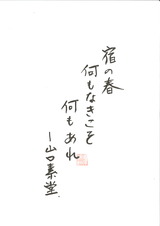 宿の春
何もなきこそ
何もあれ
ー山口素堂